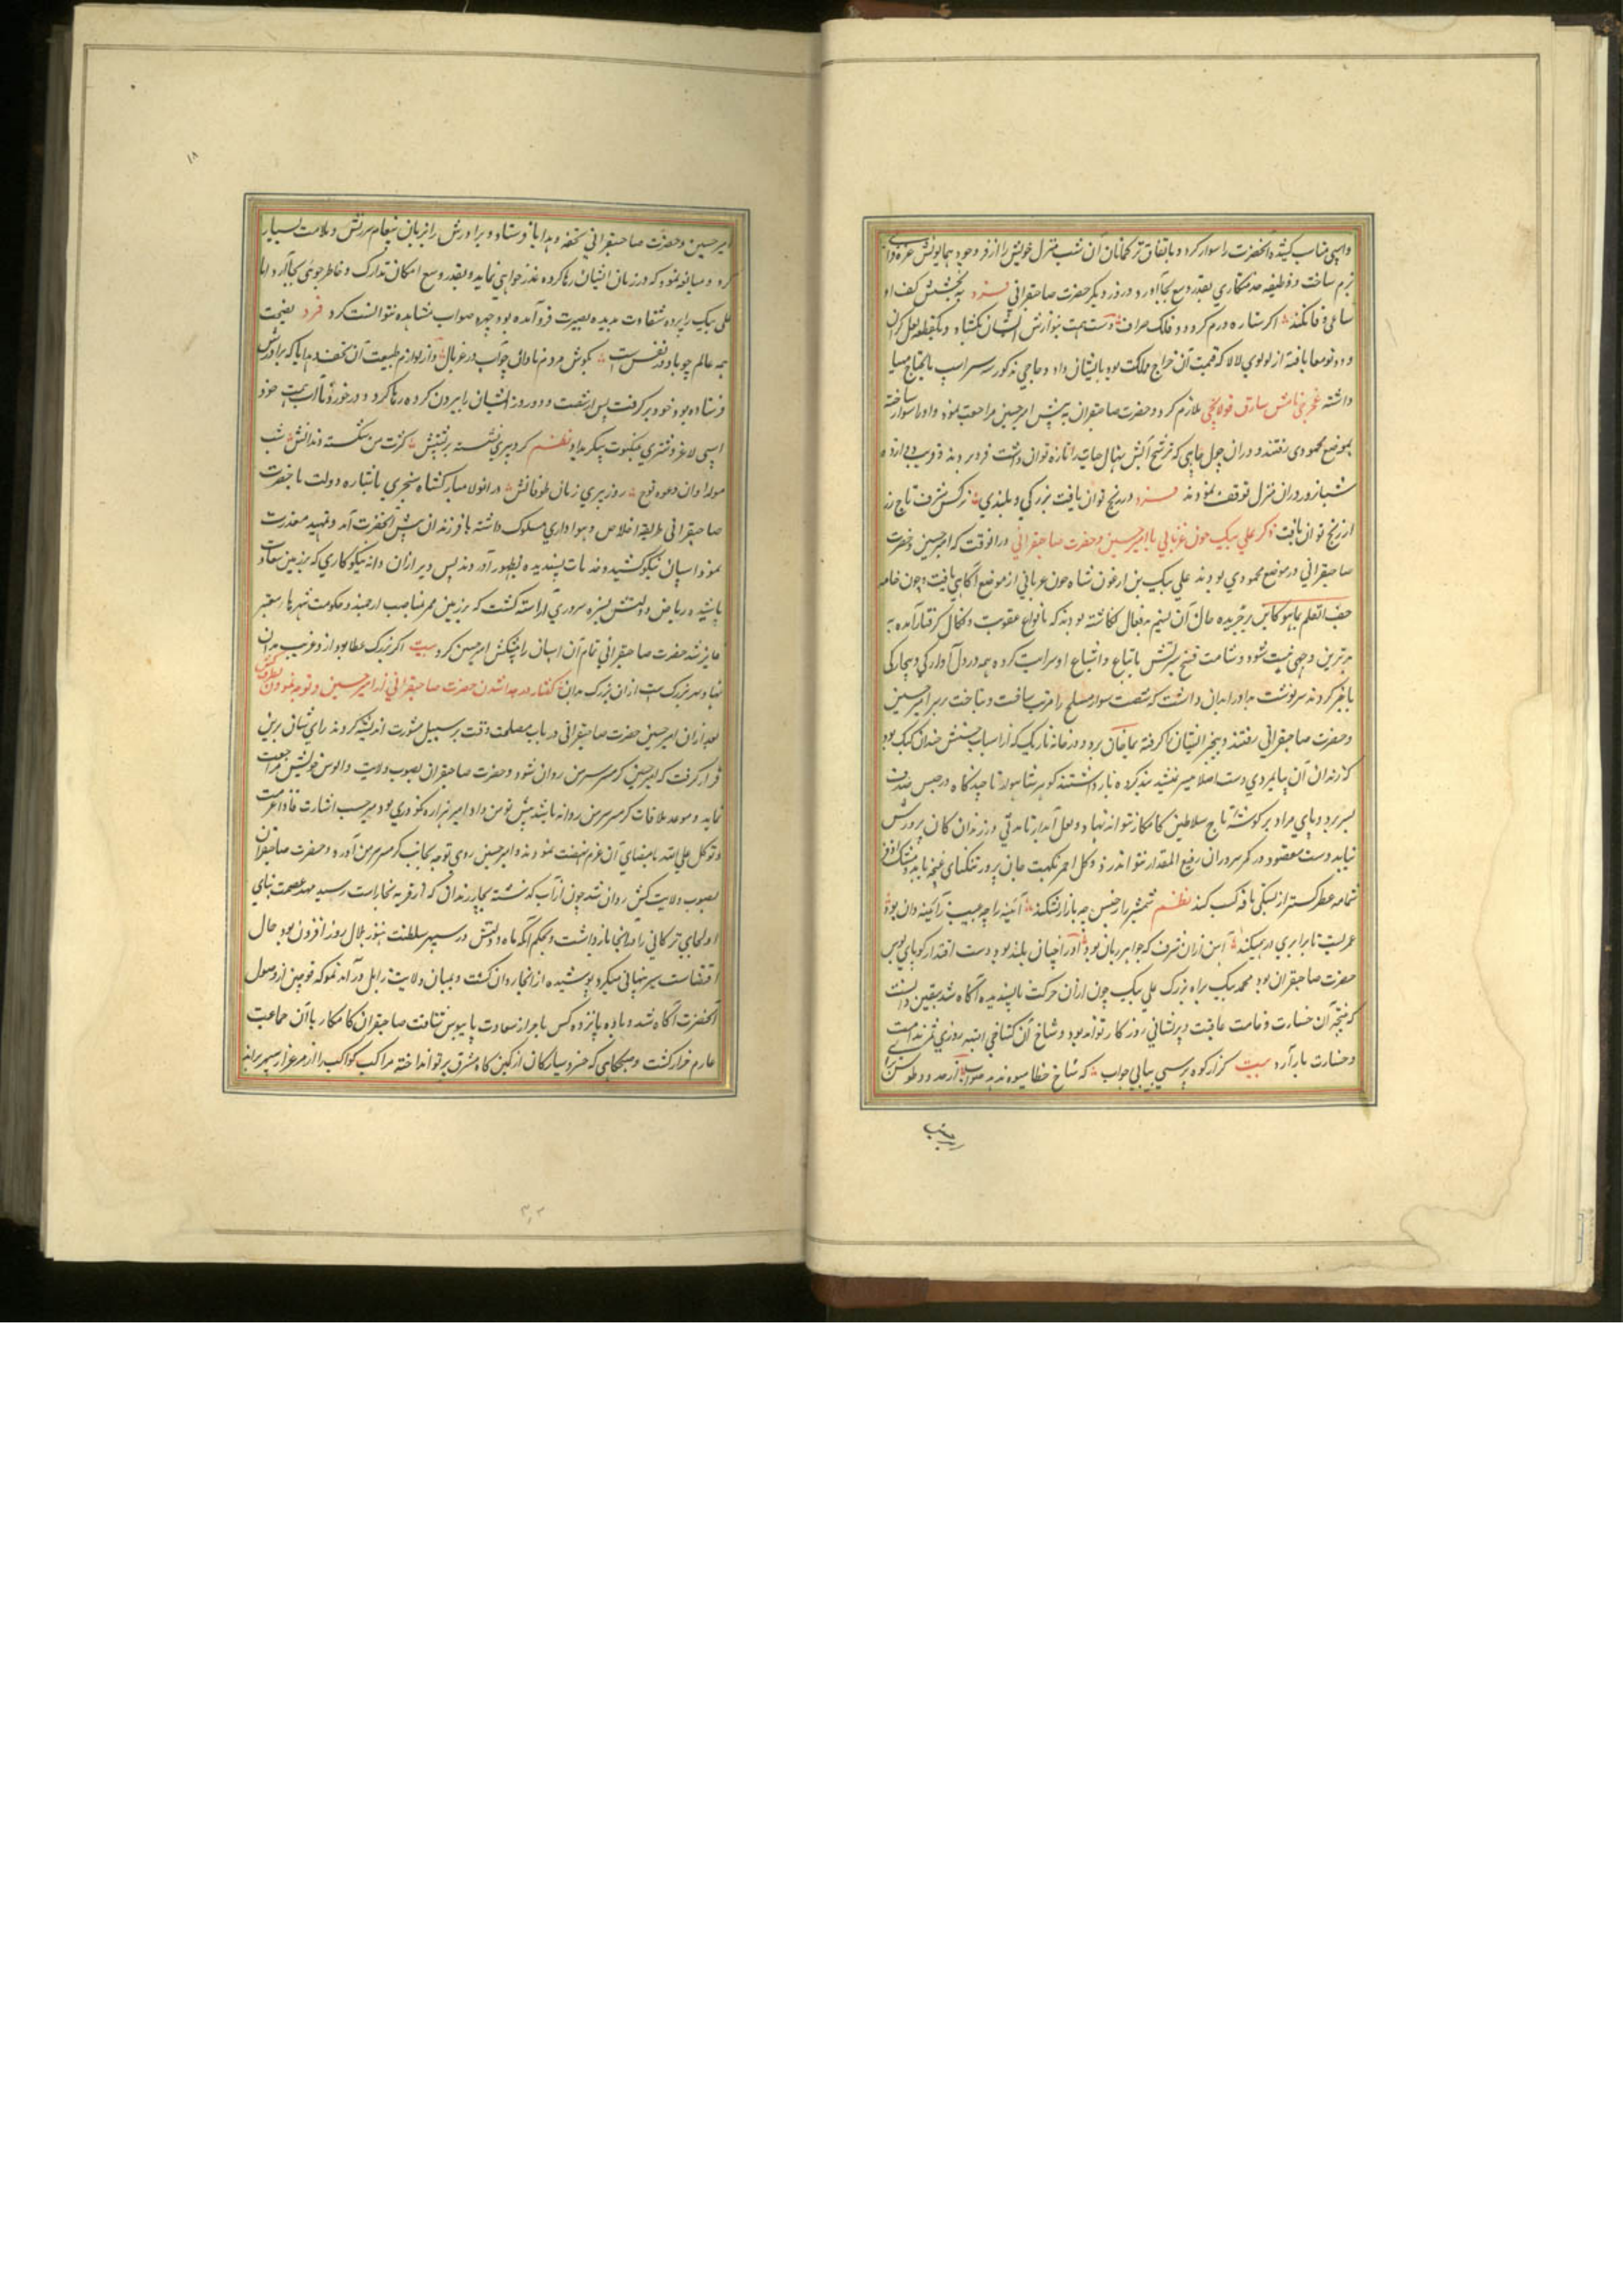 واسپی مناسب کشیده آنحضرت را سوار کرد و باتفاق ترکمانان آن شب منزل خویش را از فر وجود همایونش
بزم ساخت و وظیفه خدمتکاری بقدر وسع بجا آورد و در روز دیگر حضرت صاحبقرانی فرد به بخشش کف او
اگر ستاره درم گردد و فلک صراف دست همت بنوازش ایشان بگشاد و یکقطعه لعل گران
و دو تو معا بافته از لولوی لالا که قیمت آن خراج مملکت بود بایشان داد و حاجی مذکور سه سر اسپ مایحتاج مهیا
داشته نامش سارق قولانچی ملازم کرد و حضرت صاحبقران به پیش امیر حسین مراجعت نمود و او را سوار ساخته
بموضع محمودی رفتند و در آن چول چاهی که ترشح آبش نهال حیات را تازه توان داشت فرو بردند و قریب دوازده
شبانروز در آن منزل توقف نمودند فرد در رنج توان یافت بزرگی و بلندی نرکس شرف تاج زر
از رنج توان یافت ذکر علی بیک جون غربانی با امیر حسین و حضرت صاحبقرانی در آنوقت که امیر حسین و حضرت
صاحبقرانی در موضع محمودی بودند علی بیک بن ارغون شاه جون غربانی از موضع آگاهی یافت و چون خامه
جف القلم بما هو کاین بر جریده حال آن لئیم بدفعال نگاشته بودند که بانواع عقوبت و نکال گرفتار آمده به
بدترین وجهی نیست شود و شامت قبح سیرتش باتباع و اشیاع او سرایت کرده همه در دل آوارگی و بیچارگی
با خبر کردند سرنوشت بد او را بدان داشت که شصت سوار مسلح را مرتب ساخت و بتاخت بر سر امیر حسین
و حضرت صاحبقرانی رفتند و بیخبر ایشان را گرفته بماخان برد و در خانه تاریک که از اسباب چندان کیک بود
گذراندن آن پایمردی دست اصلا میسر نشد بند کرده باز داشتند گوهر شاهوار تا چند گاه در حبس صدف
بسر نبرد و پای مراد بر گوشه تاج سلاطین کامکار نتواند نهاد و لعل آبدار تا مدتی در زندان کان پرورش
نیابد دست مقصود در کمر سروران رفیع المقدار نتواند زد و گل احمر نکهت جان پرور تنگنای غنچه نیابد و مشک اذفر
شمامه عطر گستر از بستگی نافه کسب کند نظم شمشیر را ز حبس چه بازار بشکند آیینه را چه عیب ز آئینه دان بود
آهن زان شرف که جواهر
حضرت صاحبقران بود محمد بیک برادر بزرگ علی بیک چون از آن حرکت ناپسندیده آگاه شد بیقین دانست
که نتیجه آن خسارت وخامت عاقبت و پریشانی روزگار تواند بود و شاخ آن گستاخی البته روزی ثمره ندامت
و خسارت بار آرد بیت گر از کوه پرسی بیابی جواب که شاخ خطا میوه ندهد صواب از حدود طوس برای
امیر حسین و حضرت صاحبقرانی تحفه و هدایا فرستاد و برادرش را بزبان پیغام سرزنش و ملامت بسیار
کرد و مبالغه نمود که در زمان ایشان را رها کرده عذر خواهی نماید و بقدر وسع امکان تدارک و خاطرجوئی بجا آرد اما
علی بیک را پرده شقاوت بدیده بصیرت فرو آمده بود چهره صواب مشاهده نتوانست کرد فرد نصیحت
همه عالم چو باد در قفس است بگوش مردم نادان چو آب در غربال و از لوازم طبیعت آن تحف و هدایا که برادرش
فرستاده بود خود برگرفت پس از شصت و دو روز ایشان را بیرون کرده رها کرد و درخور دنائت همت خود
اسپی لاغر و شتری عنکبوت پیکر بداد نظم گردی پیری نشسته بر تنش کثرت سن شکسته دندانش شب
مولد او ان دعوه نوح روز پیری زمان طوفانش در آنولا مبارکشاه سنجری باشاره دولت با حضرت
صاحبقرانی طریقه اخلاص و هواداری مسلوک داشته با فرزندان پیش آنحضرت آمد و تمهید معذرت
نمود و اسپان نیکو کشید و خدمات پسندیده بظهور آوردند پس دیر از آن دانه نیکوکاری که بزمین سعادت
پاشیده ریاض دولتش بسبزه سروری آراسته گشت که بر زمین ممر مناصب ارجمند و حکومت شهرها معتبر
فایز شد حضرت صاحبقرانی تمام آن اسپان را پیشکش امیر حسین کرد بیت اگر بزرگ عطا بود از و غریب مدان
نهاد سر بزرگیست از آن بزرگ بدان گفتار در جدا شدن حضرت صاحبقرانی از امیر حسین و توجه نمودن بطرف کش
بعد از آن امیر حسین حضرت صاحبقرانی در باب مصلحت وقت بر سبیل مشورت اندیشه کردند رای شان برین
قرار گرفت که امیر حسین گرمسیر هرمن روان شود و حضرت صاحبقران بصوب ولایت و الوس خویش مراجعت
نماید و موعد ملاقات گرمسیر هرمن روانه باشد پیش تومن داد امیر هزاره نکودری بود برحسب اشارت فاذا عزمت
فتوکل علی الله بامضای آن عزم نهضت نمودند و امیر حسین روی توجه بجانب گرمسیر هرمن آورد و حضرت صاحبقران
بصوب ولایت کش روان شد چون از آب گذشته بجاربرندان که از قریه بخارا است رسید مهد عصمت پناهی
اولجای ترکانی را در آنجا باز داشت و بحکم آنکه ماه دولتش در سپهر سلطنت هنوز هلال روز افزون بود حال
اقتضاست سیر نهانی میکرد پوشیده از آنجا روان گشت و بمیان ولایت زابل درآمد تموکه قوچین از وصول
آنحضرت آگاه شد و با ده پانزده کس باحراز سعادت پایبوس شتافت صاحبقران کامکار با آن جماعت
عازم خزار گشت و صبحگاهی که خسرو سیارگان از کمین گاه مشرق پرتو انداخته مراکب کواکب را از مرغزار سپهر براند
۱۸